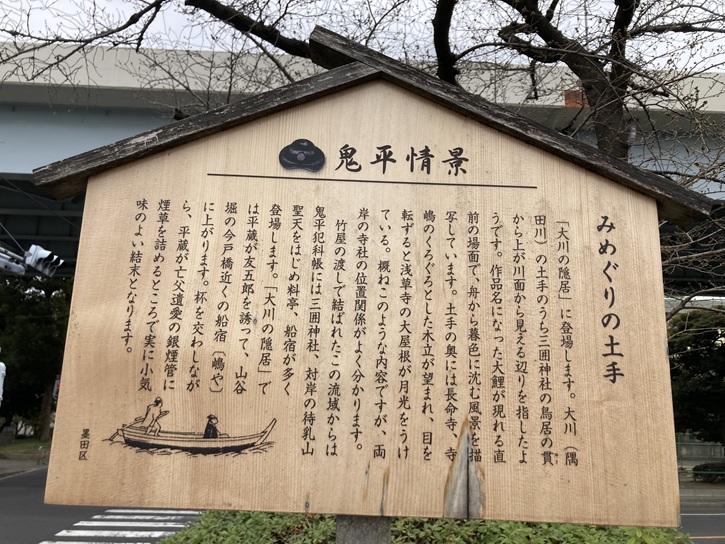 鬼平情景
みめぐりの土手
「大川の隠居」に登場します。大川（隅
田川）の土手のうち三囲神社の鳥居の貫
から上が川面から見える辺りを指したよ
うです。作品名になった大鯉が現れる直
前の場面で、舟から暮色に沈む風景を描
写しています。土手の奥には長命寺、寺
嶋のくろぐろとした木立が望まれ、目を
転ずると浅草寺の大屋根が月光をうけ
ている。概ねこのような内容ですが、両
岸の寺社の位置関係がよく分かります。
竹屋の渡しで結ばれたこの流域からは
鬼平犯科帳には三囲神社、対岸の待乳山
聖天をはじめ料亭、船宿が多く
登場します。「大川の隠居」で
は平蔵が友五郎を誘って、山谷
堀の今戸橋近くの船宿〔嶋や〕
に上がります。杯を交わしなが
ら、平蔵が亡父遺愛の銀煙管に
煙草を詰めるところで実に小気
味のよい結末となります。
墨田区